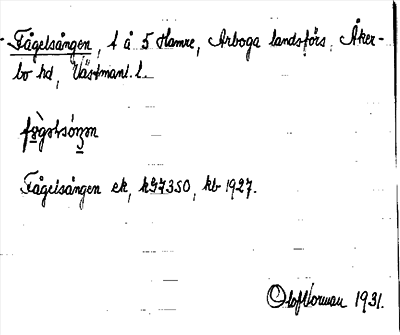 Fågelsången, t å 5 Hamre, Arboga landsförs. Åker-
bo hd, Västmanl. l.
Fågelsången ek, kb 1927.
Olof Norman 1931.